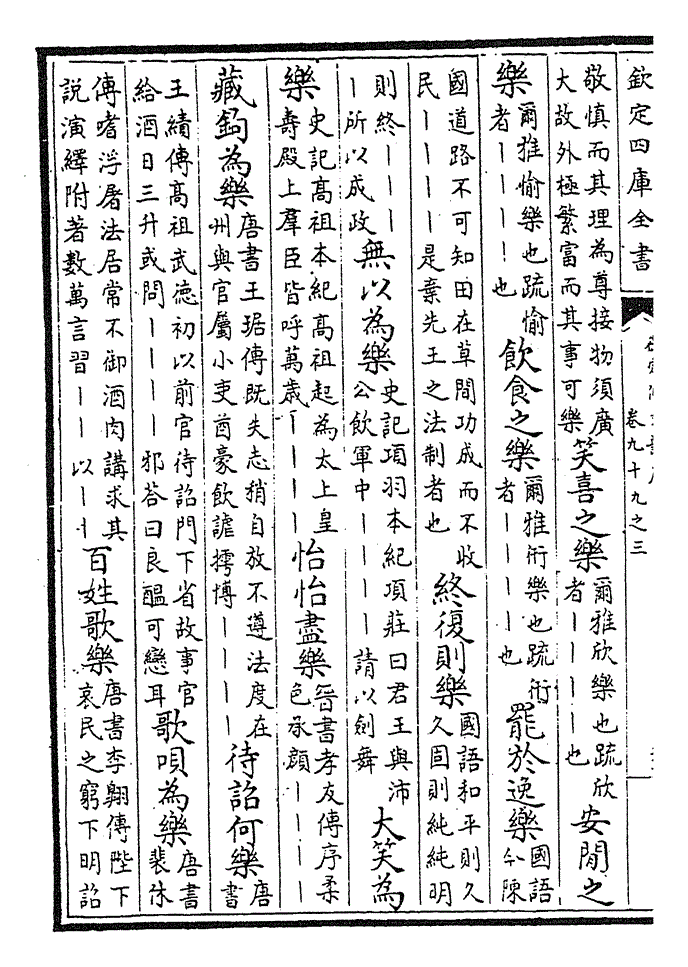 欽定四庫全書
卷九十九之三
敬慎而其理為尊接物須廣大故外極繁富而其事可樂笑喜之樂爾雅欣樂也疏欣者丨丨丨丨也安閒之
樂爾雅愉樂也疏愉者丨丨丨丨也飲食之樂爾雅衎樂也疏衎者丨丨丨丨也罷於逸樂國語今陳
國道路不可知田在草間功成而不收民丨丨丨丨是棄先王之法制者也終復則樂國語和平則久久固則純純明
則終丨丨丨丨所以成政無以為樂史記項羽本紀項莊曰君王與沛公飲軍中丨丨丨丨請以劍舞大笑為
樂史記高祖本紀高祖起為太上皇壽殿上羣臣皆呼萬歲丨丨丨丨怡怡盡樂晉書孝友傳序柔色承顔丨丨丨丨
藏鉤為樂唐書王琚傳既失志稍自放不遵法度在州與官屬小吏酋豪飲謔摴博丨丨丨丨待詔何樂唐書
王績傳高祖武德初以前官待詔門下省故事官給酒日三升或問丨丨丨丨邪荅曰良醖可戀耳歌唄為樂唐書裴休
傳嗜浮屠法居常不御酒肉講求其説演繹附著數萬言習丨丨以丨丨百姓歌樂唐書李翺傳陛下哀民之窮下明詔